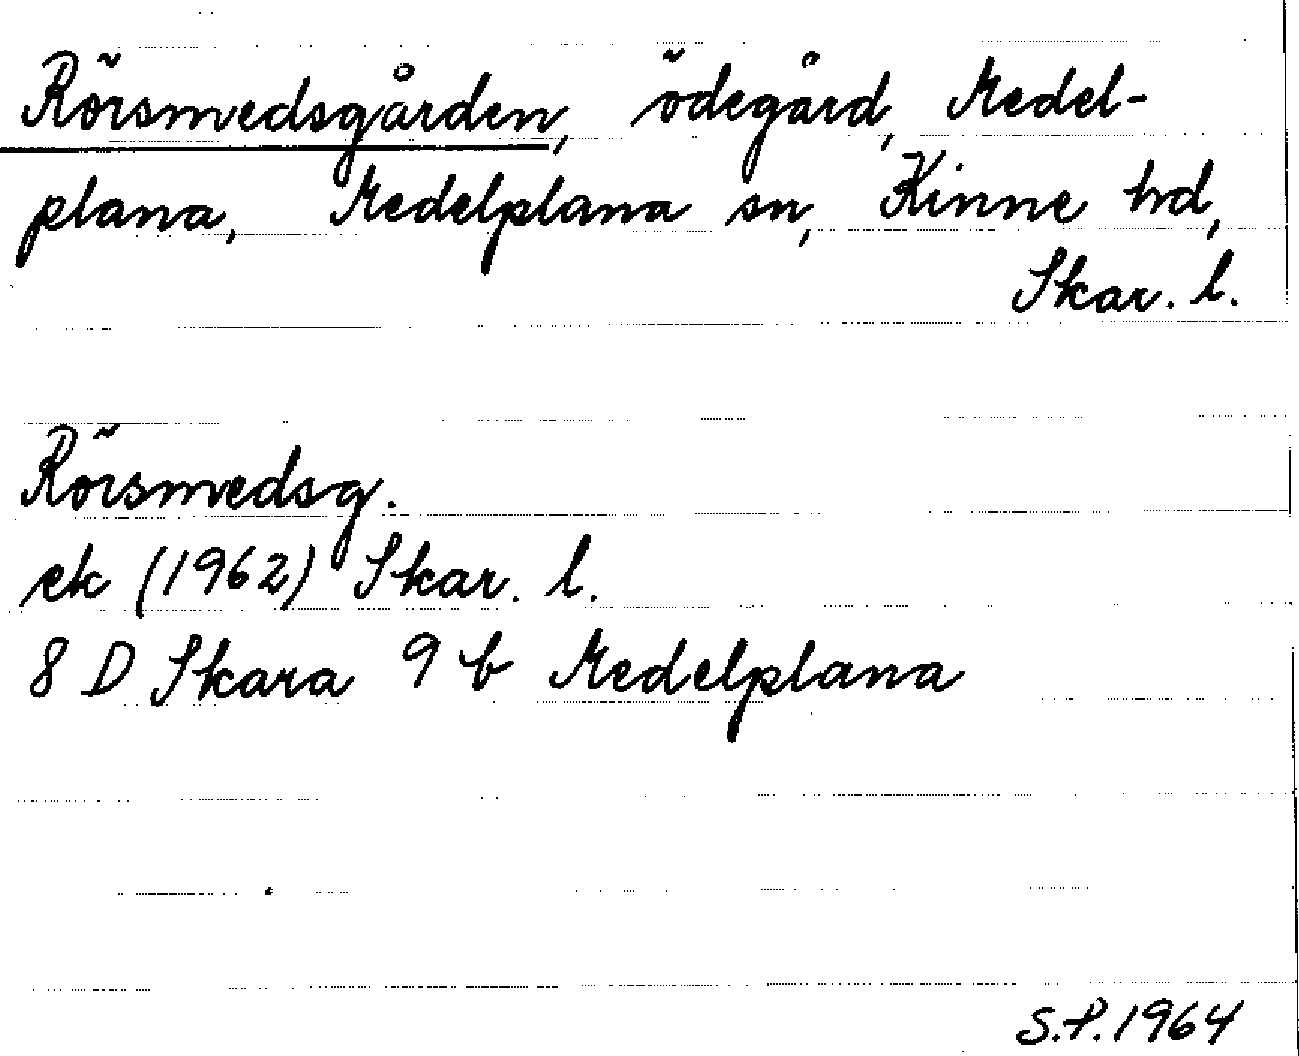 Rörsmedsgården, ödegård, Medel-
plana, Medelplana sn, Kinne hd,
Skar. l.
Rörsmedsg.
ek (1962) Skar. l.
8 D Skara 9 b Medelplana
S.P. 1964